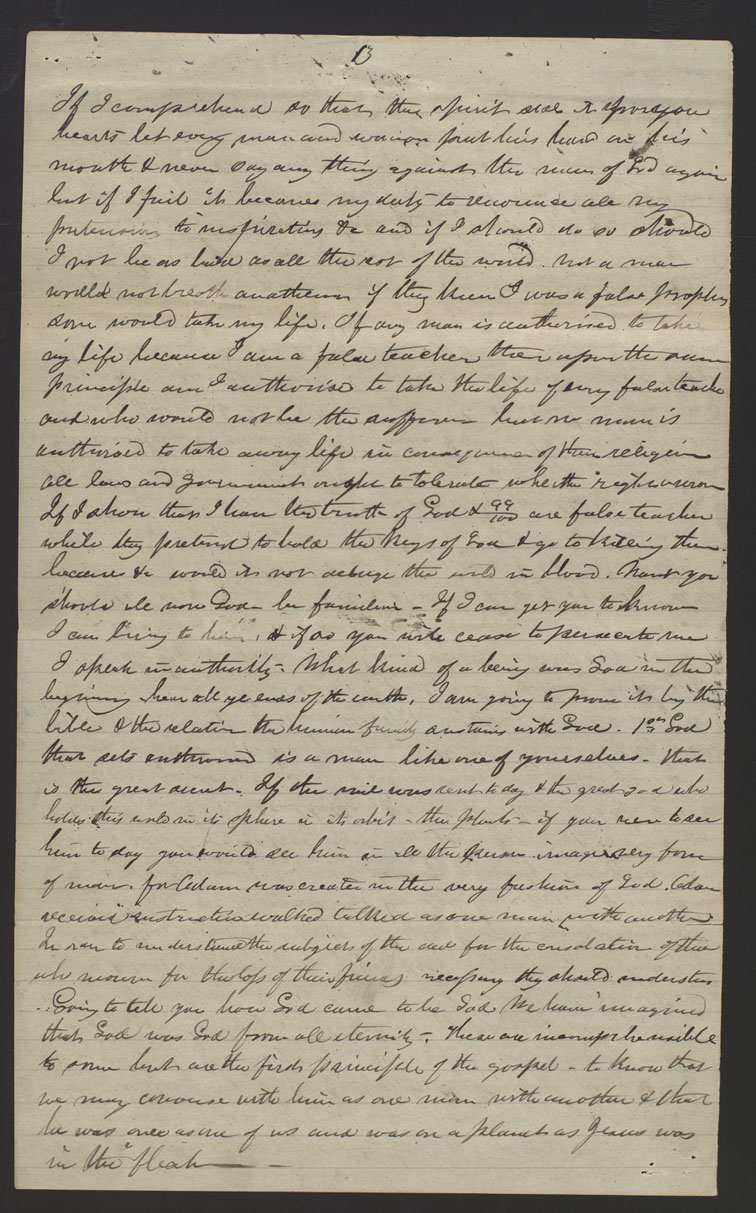 13
If I comprehend so that the spirit seal it upon your
hearts let every man and woman put his hand on his
mouth & never say any thing against the man of God again
but if I fail it becomes my duty to renounce all my
pretensions to inspiration &c and if I should do so should
I not be as bad as all the rest of the world. not a man
would not breath anathema if they knew I was a false prophet
some would take my life. If any man is authorised to take
my life because I am a false teacher then upon the same
principle am I authorised to take the life of every false teacher
and who would not be the sufferer but no man is
authorised to take away life in consequence of their religion
all laws and governments ought to tolerate whether right or wrong
If I show that I have the truth of God & 99/100 are false teachers
while they pretend to hold the keys of God & go to killing them
because &c would it not deluge the world in blood. Want you
should all now God be familiar - If I can get you to know
I can bring to him, & if so you will cease to persecute me
I speak in authority - What kind of a being was God in the
begining, hear all ye ends of the earth, I am going to prove it by the
bible & the relation the human family sustains with God. 1st God
that sets enthroned is a man like one of yourselves - that
is the great secret - If the vail was rent to day & the great God who
holds this world in its sphere in its orbit - the planets - if you were to see
him to day you would see him in all the person image very form
of man. for Adam was created in the very fashion of God. Adam
received instruction walked talked as one man with another
In order to understand the subject of the dead for the consolation of those
who mourn for the loss of their friends necessary they should understand
Going to tell you how God came to be God. We have imagined
that God was God from all eternity - These are incomprehensible
to some but are the first principle of the gospel - to know that
we may converse with him as one man with another & that
he was once as one of us and was on a planet as Jesus was
in the flesh